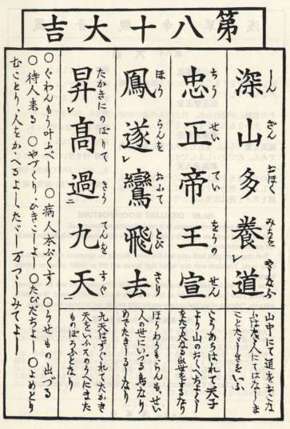 第八十大吉
深山多養道
しんざんおほくみちをやしなふ
忠正帝王宣
ちうせいていわうのせん
鳳遂鸞飛去
ほうらんをおふてとびさり
昇髙過九天
たかきにのぼりてきうてんをすぐ
山中にて道を
とくあらはれて天子
より山のおくへちよくし
をたて大なる出世をするなり
ほうわうもらんもせい
人の世にいづる鳥なり
九天はすぐれてたかき
天をいふ
○ぐわんもう叶ふべし ○病人本ぶくす ○うせもの出づる
○待人来る ○やづくりひきこしよし ○たびだちよし ○よめとり
むことり人をかゝへるよし たゞし万つゝしみてよし